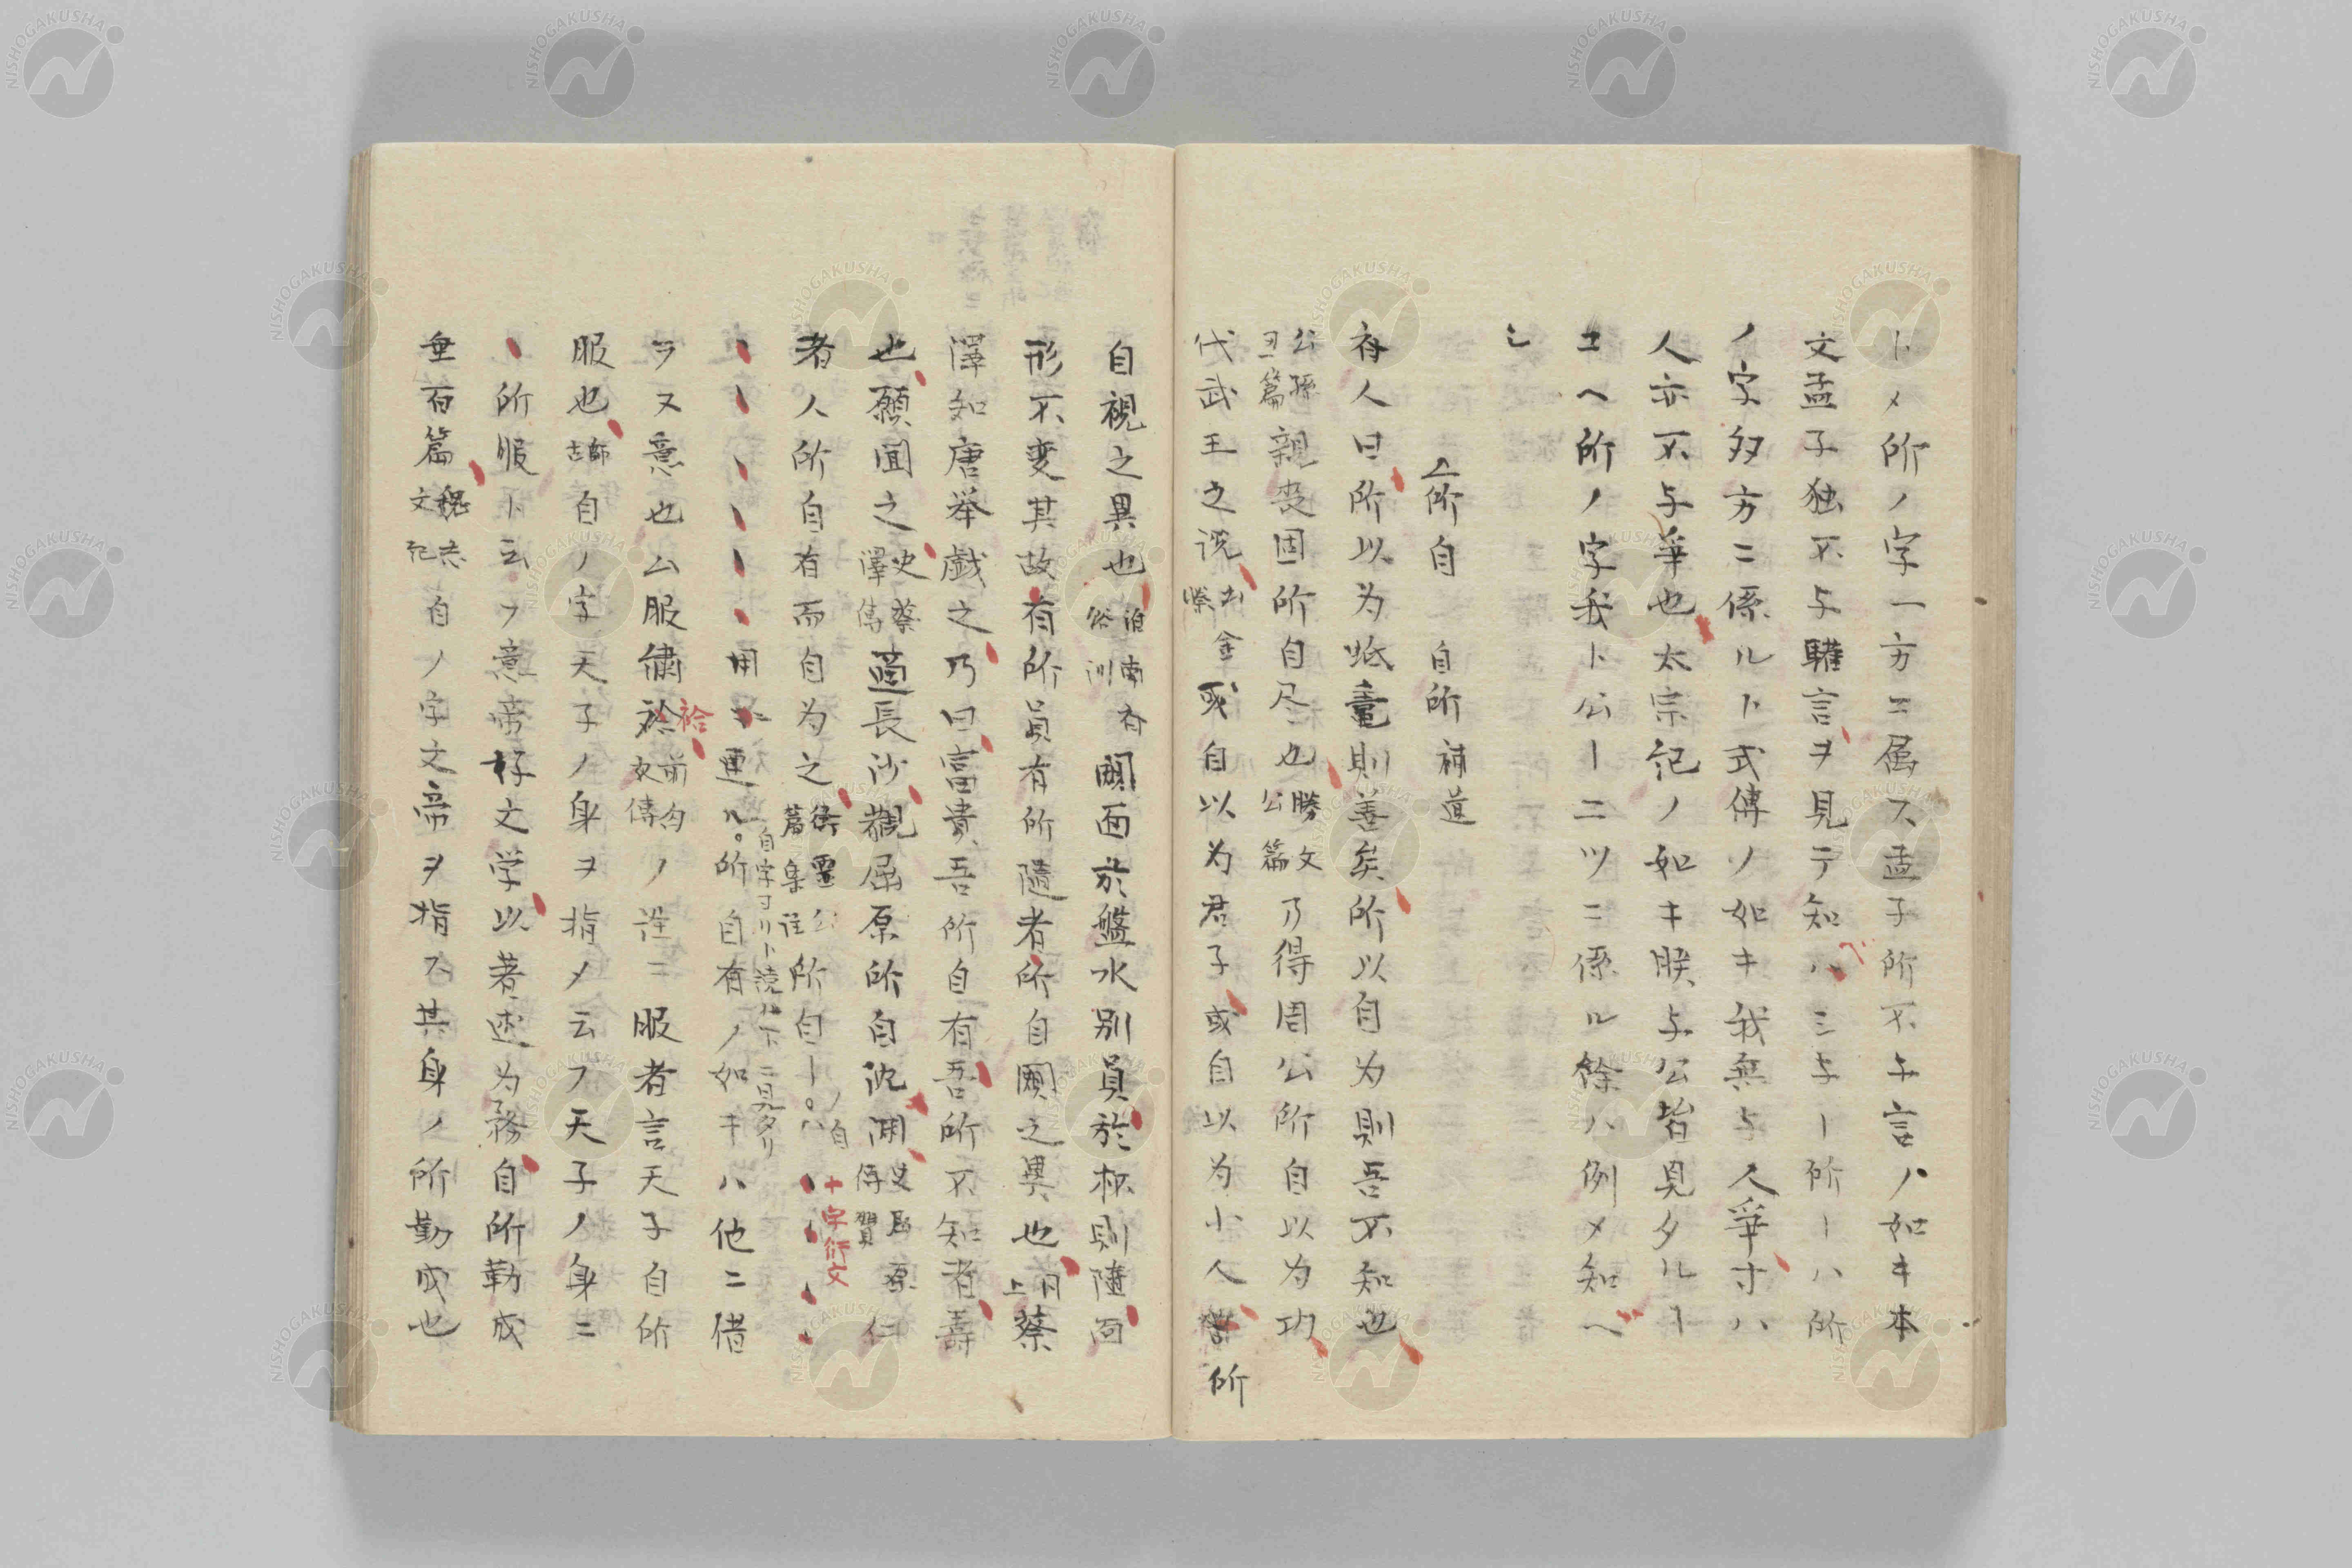 トメ所ノ字一方ニ属ス孟子所不与言ノ如キ本
文孟子独不与驩言ヲ見テ知ヘシ与ー所ーハ所
ノ字双方ニ係ルト式傳ノ如キ我無与人華寸ハ
人亦不与華也太宗記ノ如キ朕与公皆見タルー
ユヘ所ノ字我ト公ーニツニ係ル餘ハ例メ知ヘ
シ
所自 自所 補道
有人曰所以为蚳鼃則善矣所以自为則吾不知也
公孫丑篇親喪固所自尽也勝文公篇乃得周公所自以为功
代武王之说金或自以为君子或自以为小人所
自視之異也窺面於盤水則員於杯則隨面
形不変其故有所員有所隨者所自窺之異也同上蔡
澤知唐举戯之乃曰富貴吾所自有吾所不知者壽
也願聞之史蔡澤傳適長沙觀屈原所自沈淵史屈原賈傳仁
者人所自有而自为之衛霊公篇集注所自ー
用 連ル。所自有ノ如キハ他ニ借
自字ヨリト読ハ下ニ見タリ
十字衍文
ヲ又意也ム服繍袷袷前匈奴傳ノ注ニ服者言天子自所
服也師古自ノ字天子ノ身ヲ指メ云フ天子ノ身ニ
所服ト云フ意帝好文学以著述为務自所勤成
垂百篇魏志文紀自ノ字文帝ヲ指ス其身ノ所勤成也
NISHOGAKUSHA